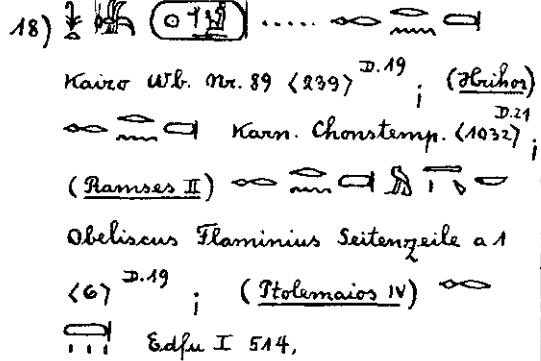 18) 𓇓𓏏 𓆤 ..... 𓂋𓈖𓍷
Kairo Wb. Nr. 89 <239> D.19 ; (Hrihor)
𓂋𓈖𓍷 Karn. Chonstemp. <1032> D.21 ;
(Ramses II) 𓂋𓈖𓍷
Obeliscus Flaminius Seitenzeile a 1
<6> D.19 ; (Ptolemaios IV)
𓍷𓏥 Edfu I 514,